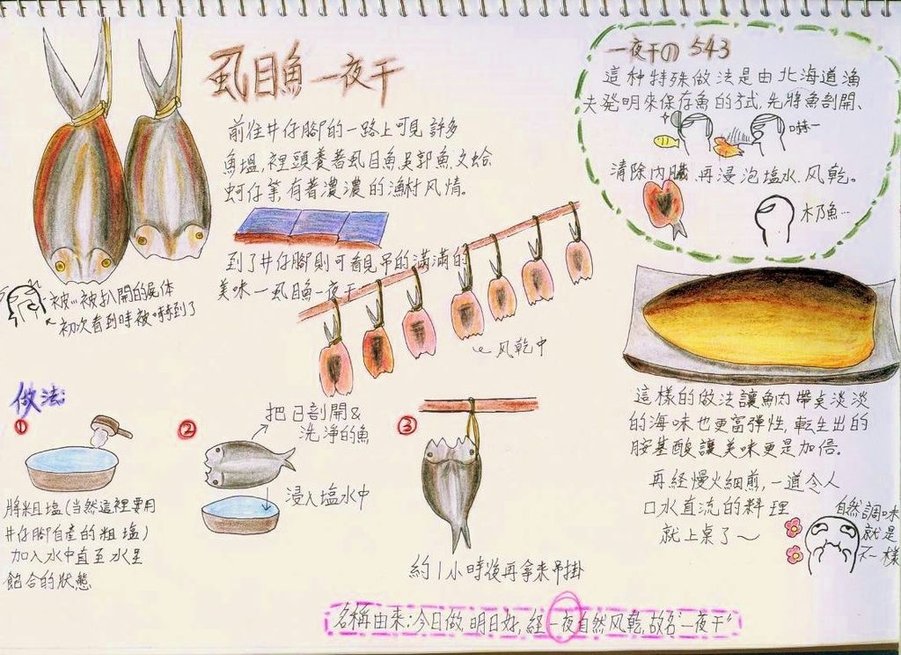 虱目魚一夜干
前往井仔腳的一路上可見許多
魚塭,裡頭養著虱目魚吳郭魚文蛤
蚵仔等,有著濃濃的漁村风情。
到了井仔腳則可看見吊的滿滿的
美味—虱目魚一夜干
被…被扒開的屍体
初次看到時被嚇到了
风乾中
一夜干の543
這种特殊做法是由北海道漁
夫発明來保存魚的方式,先將魚剖開、
嚇—
清除內臟,再浸泡塩水,风乾。
木乃魚…
這樣的做法讓魚肉帶点淡淡
的海味也更富彈性,転生出的
胺基酸讓美味更是加倍。
再経慢火細煎,一道令人
口水直流的料理
就上桌了～
自然調味
就是
不一樣
做法:
①
將粗塩(当然這裡要用
井仔腳自產的粗塩)
加入水中直至水呈
飽合的狀態
②
把已剖開&
洗淨的魚
浸入塩水中
③
約1小時後再拿來吊掛
名稱由来:今日做,明日好,経一夜自然风乾,故名"一夜干"